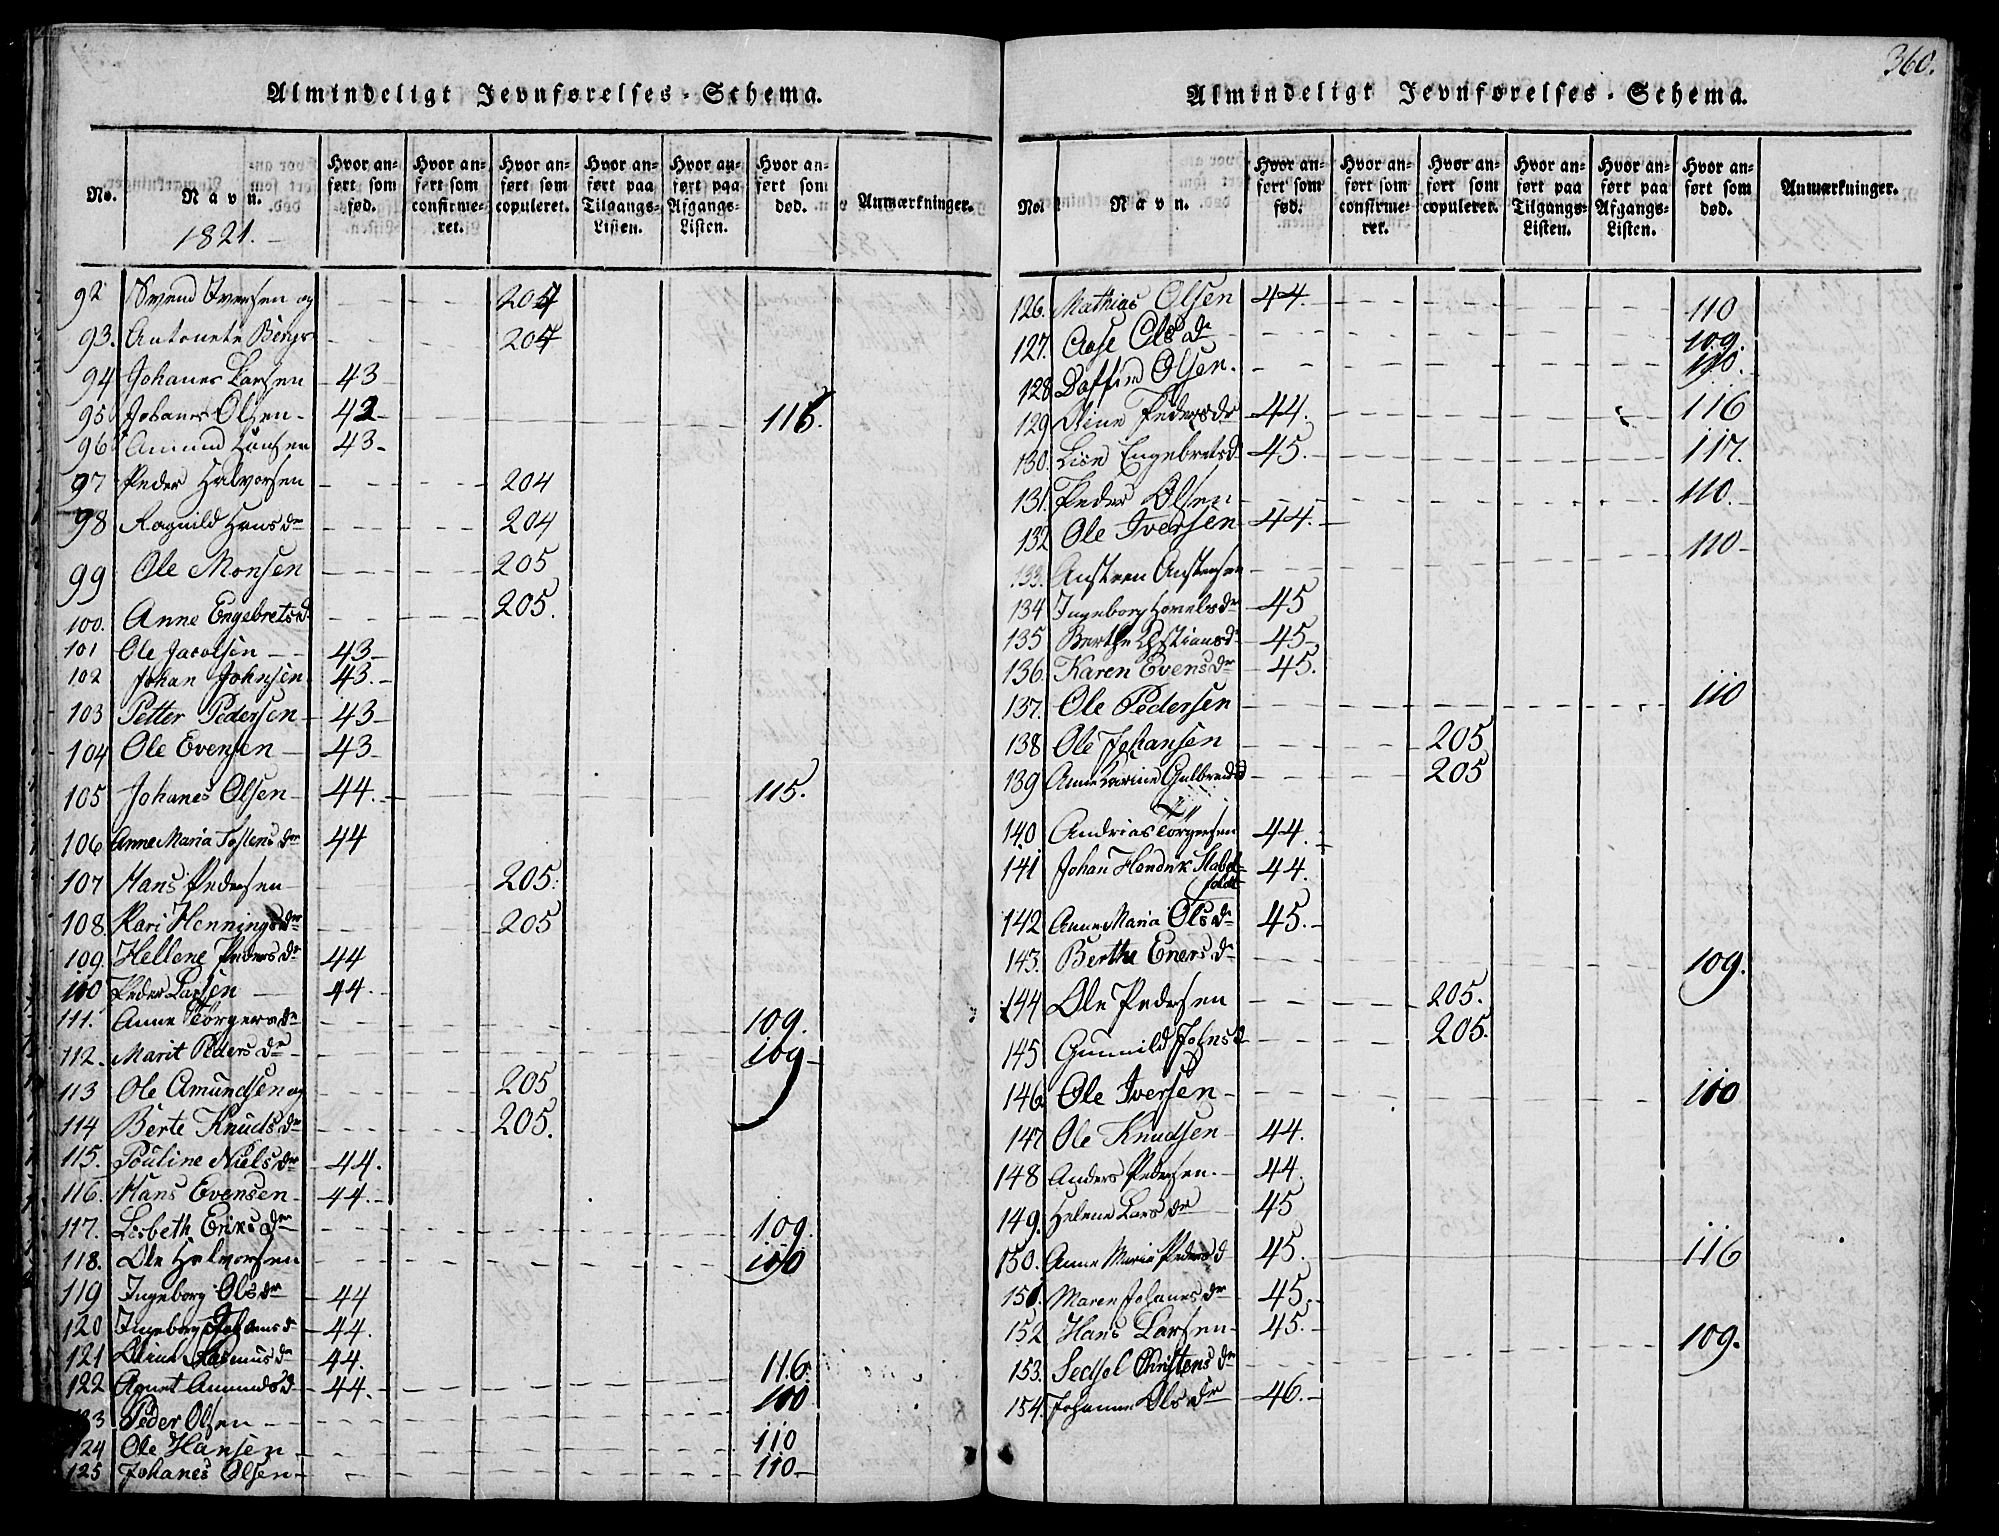 Almindeligt Jevnførelses-Schema.
No.
Navn.
Hvor anført som fød.
Hvor anført som confirmeret.
Hvor anført som copuleret.
Hvor anført paa Tilgangs-Listen.
Hvor anført paa Afgangs-Listen.
Hvor anført som død.
Anmærkninger.
1821.
92 Svend Iversen og 204
93. Antonete 204
94 Johanes Larsen 43
95 Johanes Olsen 42 116.
96 Amund 43
97 Peder Halvorsen 204
98 Ragnild Hansdr 204
99 Ole Monsen 205
100. Anne Engebretsd 205.
101 Ole Jacobsen 43
102 Johan Johnsen 43.
103 Petter Pedersen 43
104 Ole Evensen 43
105 Johanes Olsen 44. 115.
106 Anne Maria Tostensdr 44
107 Hans Pedersen 205.
108. Kari Henningsdr 205
109. Hellene Pedersdr 44
110 Peder Larsen 44.
111. Anne Törgersdr 109.
112. Marit Pedersdr 109
113 Ole Amundsen og 205
114 Berte Knudsdr 205.
115. Pouline Nielsdr 44.
116. Hans Evensen 44.
117. Lisbeth Eriksdr 109.
118. Ole Halvorsen
119 Ingeborg Olsdr 44
120 Ingeborg 44.
121 Rasmusdr 44. 116.
122 Agnet Amundsd 44.
Peder Olsen
124 Ole Hansen 110
125 Johanes Olsen 110
360.
Almindeligt Jevnførelses-Schema.
No.
Navn.
Hvor anført som fød.
Hvor anført som confirmeret.
Hvor anført som copuleret.
Hvor anført paa Tilgangs-Listen.
Hvor anført paa Afgangs-Listen.
Hvor anført som død.
Anmærkninger.
126. Mathias Olsen 44. 110
127. Aase Olsdr 109.
128 Daffin Olsen. 110.
129 Pedersdr 44. 116
130. Lise Engebretsd 45. 117.
131. Peder Olsen 110.
132 Ole Iversen 44.
133. Austeen Austensen 110
134 Ingeborg 45
135 Berthe 45
136. Karen Evensdr 45.
137. Ole Pedersen 110
138 Ole Johansen 205
139 Anne Karine Gulbrandsd 205
140 Andrias Törgersen 44.
141 Johan Hendrik 44.
142 Anne Maria Olsdr 45.
143. Berthe Enersdr 109.
144 Ole Pedersen 205.
145 Gunnild Johnsd 205.
146. Ole Iversen 110
147 Ole Knudsen 44.
148 Anders Pedersen. 44.
149. Helene Larsdr 45
150. Anne Maria Pedersd 45. 116
151. Maren Johanesdr 45.
152 Hans Larsen 45.
153. Christensdr 109.
154. Johanne Olsdr 46.